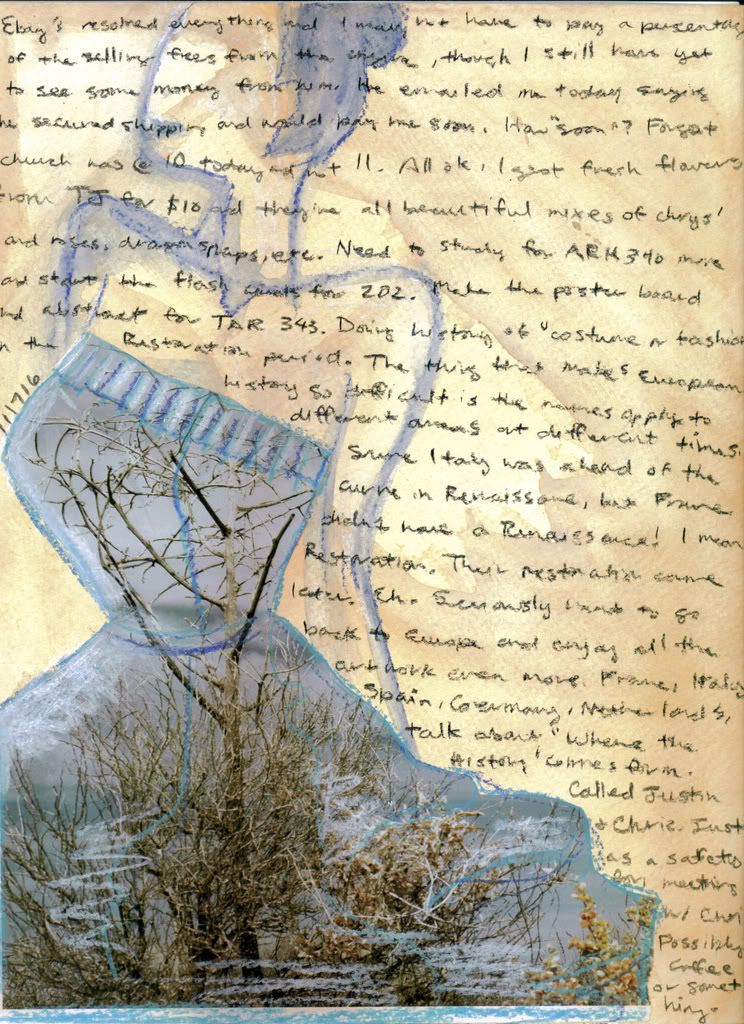 Ebay's resolved everything and I may not have to pay a percentage
of the selling fees from the, though I still have yet
to see some money from him. He emailed me today saying
he secured shipping and would pay me soon. How "soon"? Forgot
church was @ 10 today and not 11. All ok, I got fresh flowers
from TJ for $10 and they're all beautiful mixes of chrys'
and roses, dragon snaps, etc. Need to study for ARH 340 more
and start the flash cards for 202. Make the poster board
and abstract for TAR 343. Doing history of "costume or fashion
in the Restoration period. The thing that makes European
11/7/16
history so difficult is the names apply to
different areas at different times.
Sure Italy was ahead of the
curve in Renaissance, but France
didn't have a Renaissance! I mean
Restoration. Their restoration came
later. Eh. Seriously need to go
back to Europe and enjoy all the
artwork even more. France, Italy,
Spain, Germany, Netherlands,
talk about "Where the
History' comes from.
Called Justin
+ Chris. Just
as a safety
for meeting
w/ Chris
Possibly
coffee
or somet
hing.